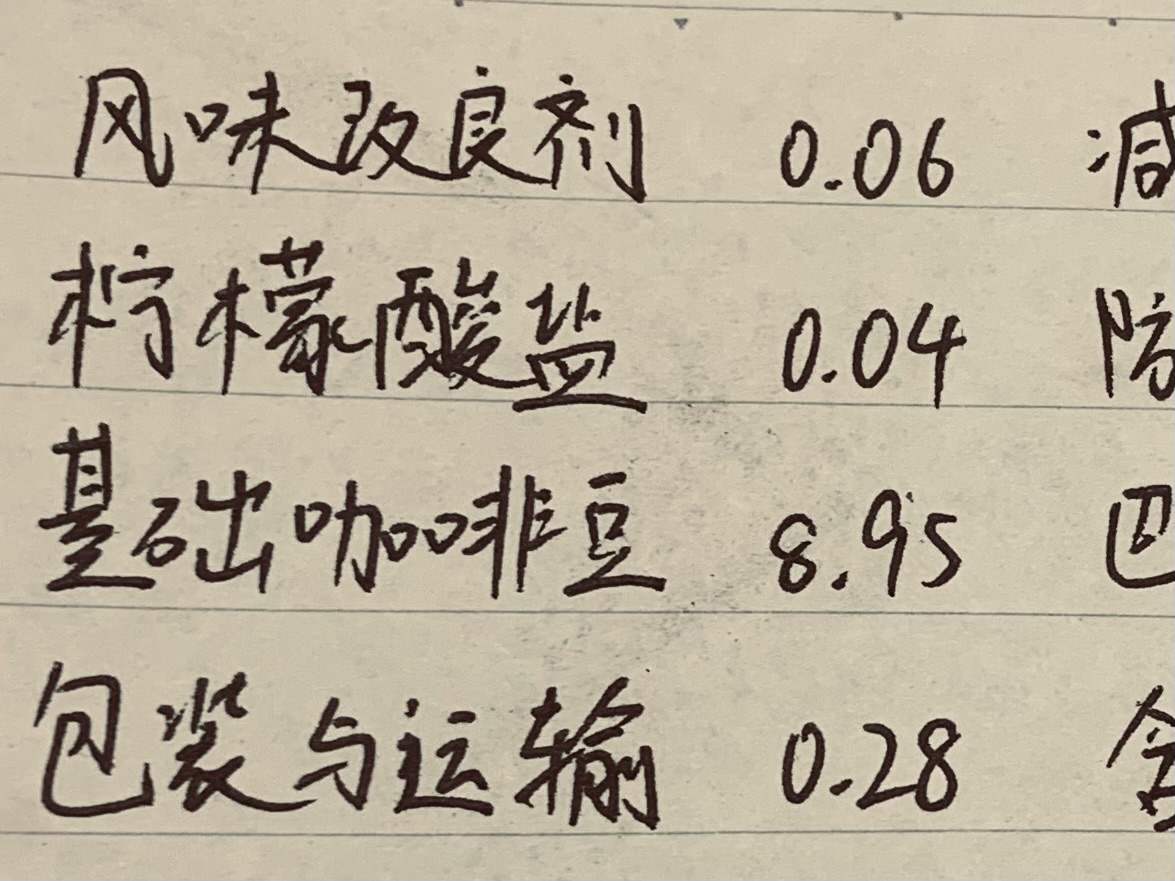 风味改良剂 0.06 减
柠檬酸盐 0.04 防
基础咖啡豆 8.95 巴
包装与运输 0.28